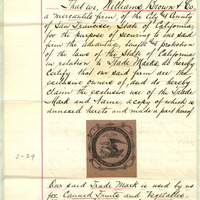 That we, Williams, Brown & Co.
a mercantile firm, of the City & County
of San Francisco, State of California,
for the purpose of securing to our said
firm the advantage, benefit & protection
of the laws of the State of California
in relation to Trade Marks, do hereby
Certify that our said firm are the
exclusive owners of, and do hereby
claim the exclusive use of the Trade
Mark and Name, a copy of which is
annexed hereto and made a part hereof
2-29
Our said Trade Mark is used by us
for Canned Fruits and Vegetables.